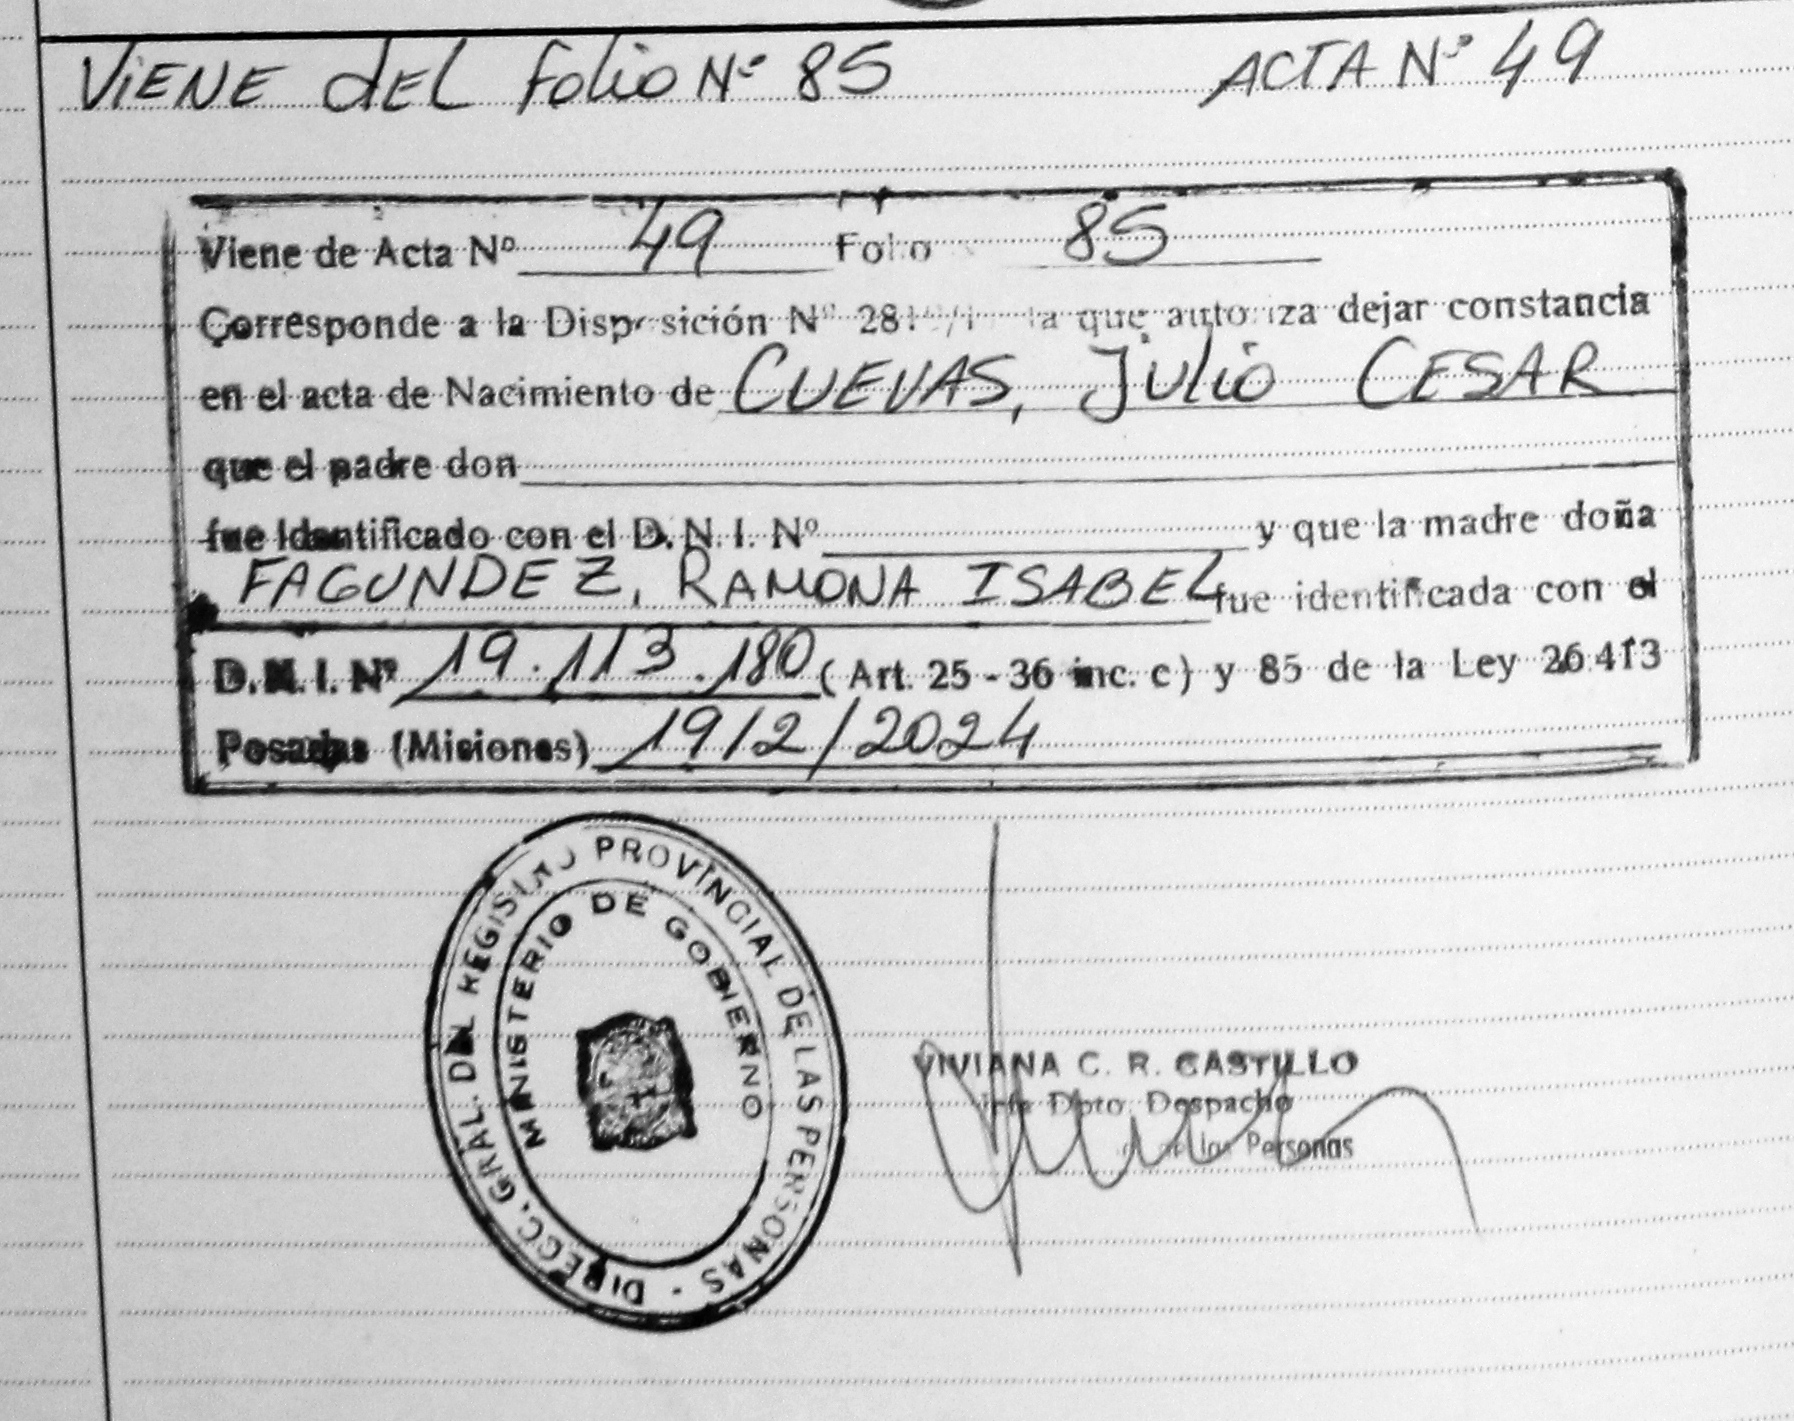 VIENE DEL Folio Nº 85 ACTA Nº 49
Viene de Acta Nº 49 Folio 85
Corresponde a la Disposición Nº la que autoriza dejar constancia
en el acta de Nacimiento de CUEVAS, Julio CESAR
que el padre don
fue Identificado con el D. N. I. Nº y que la madre doña
FAGUNDEZ, RAMONA ISABEL fue identificada con el
D. N. I. Nº 19.113.180 ( Art. 25 - 36 inc. c ) y 85 de la Ley 26.413
Posadas (Misiones) 19/2/2024
DIRECC. GRAL. DEL REGISTRO PROVINCIAL DE LAS PERSONAS -
MINISTERIO DE GOBIERNO
VIVIANA C. R. CASTILLO
Dpto. Despacho
de las Personas